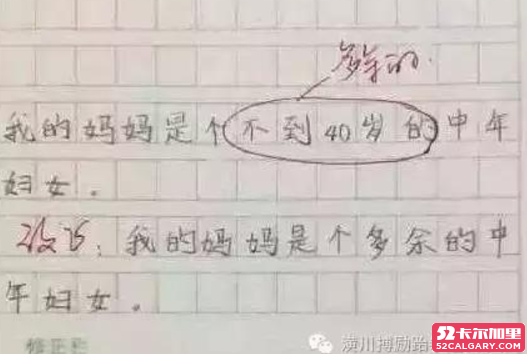 多余的.
我的妈妈是个不到40岁的中年
妇女.
改正:我的妈妈是个多余的中
年妇女.
潢川搏励路
52卡尔加里
52CALGARY.COM